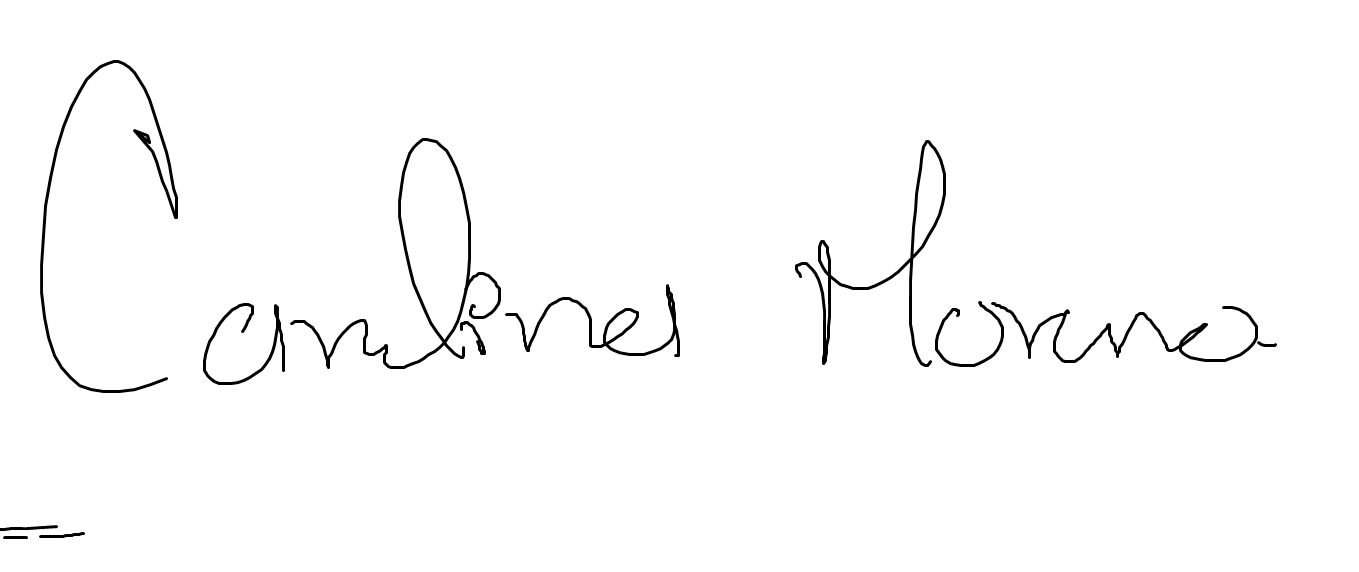 Carolina Moreno